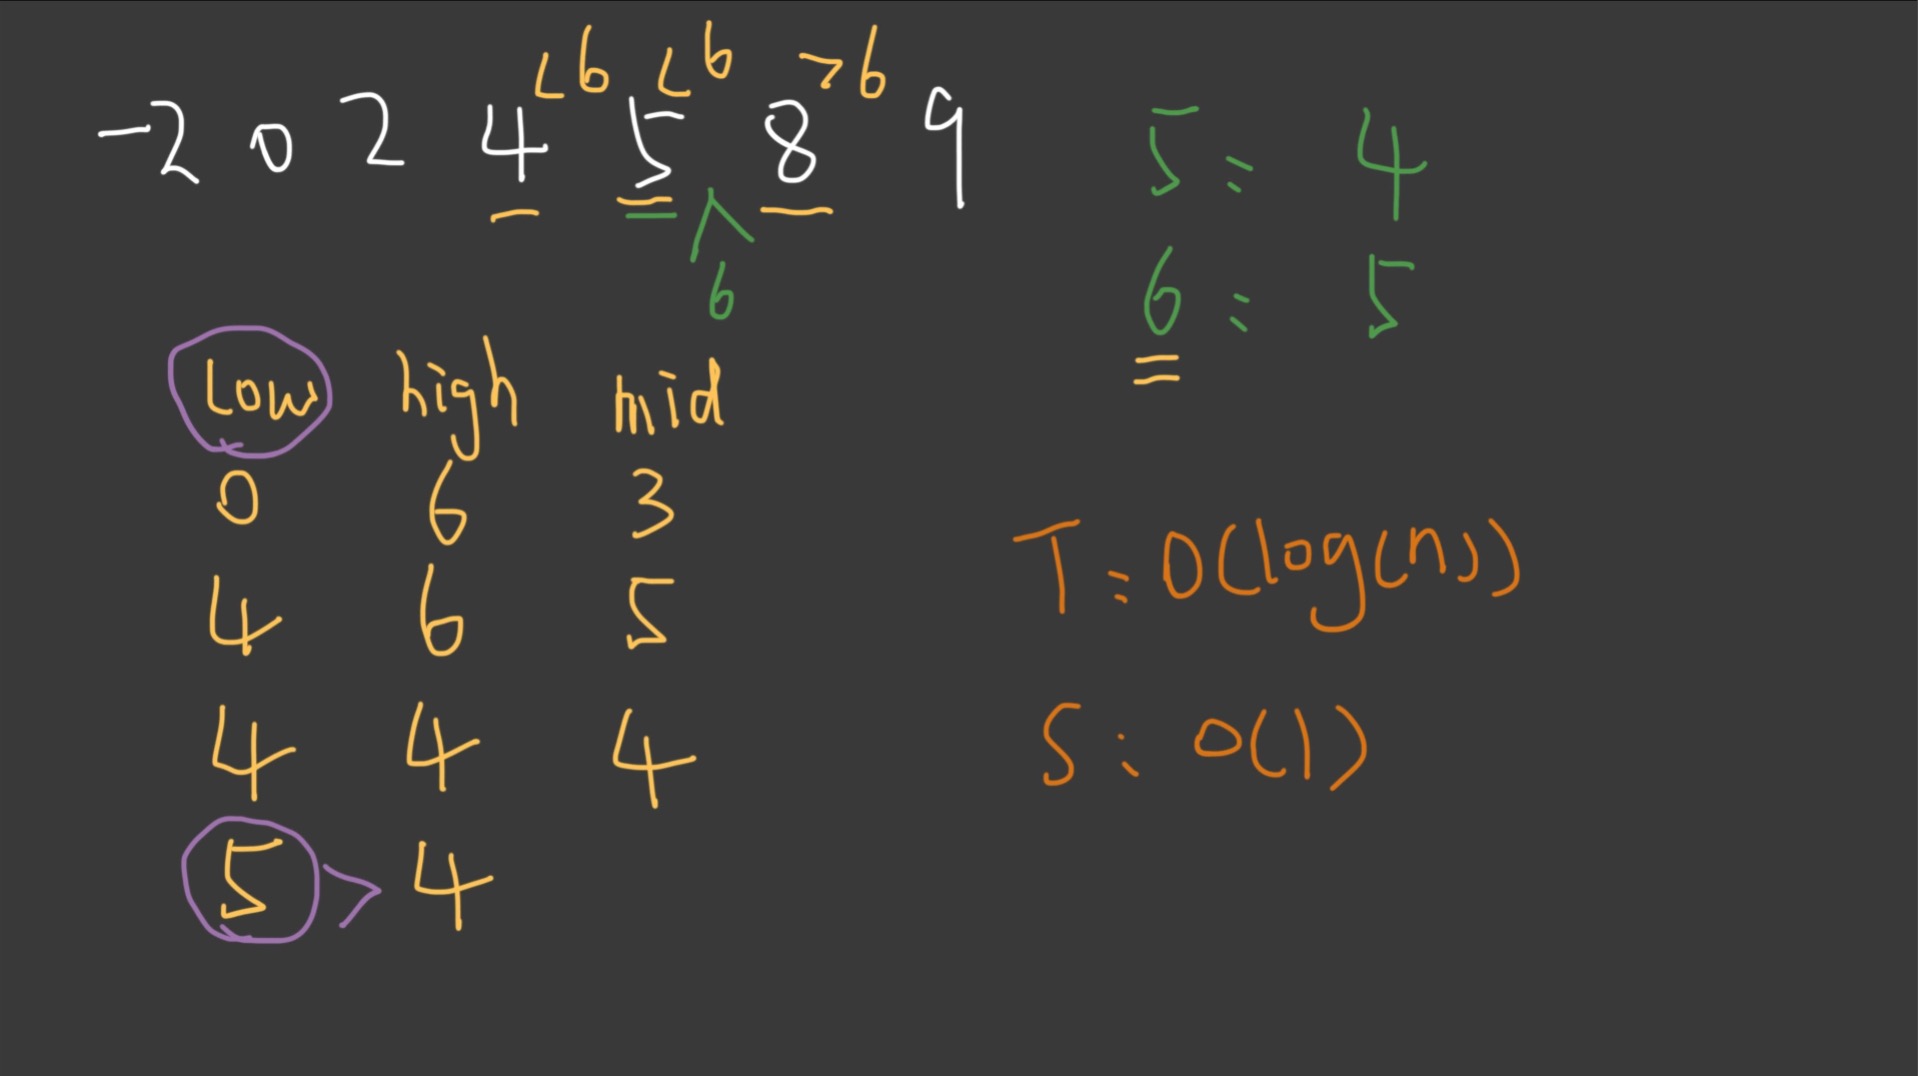 <6 <6 >6
-2 0 2 4 5 8 9
6
5: 4
6: 5
low high mid
0 6 3
4 6 5
4 4 4
5 > 4
T: O(log(n))
S: O(1)